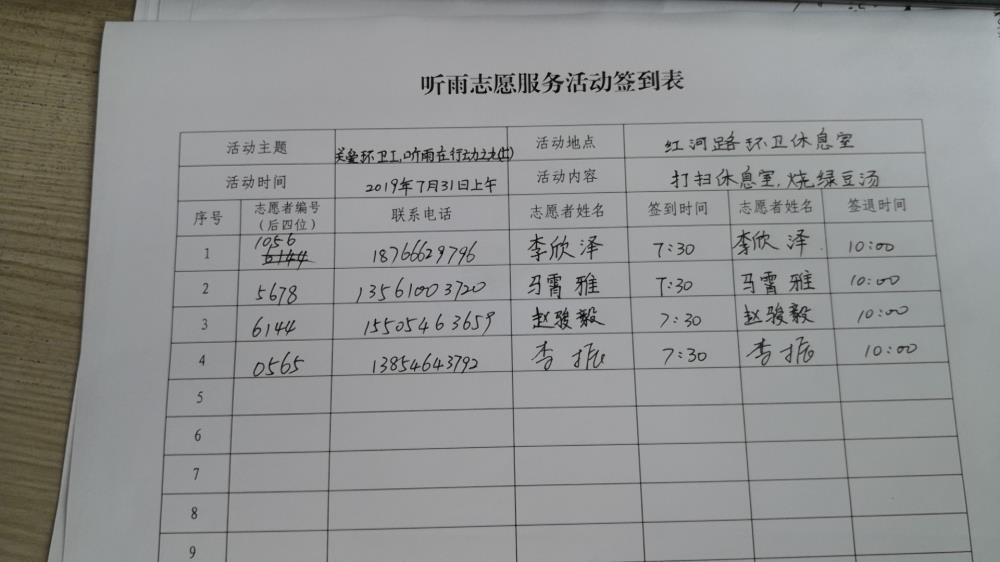 听雨志愿服务活动签到表
活动主题 关爱环卫工,听雨在行动之 活动地点 红河路环卫休息室
活动时间 2019年7月31日上午 活动内容 打扫休息室,烧绿豆汤
序号 志愿者编号(后四位) 联系电话 志愿者姓名 签到时间 志愿者姓名 签退时间
1 1056 6144 18766629796 李欣泽 7:30 李欣泽 10:00
2 5678 13561003720 马霄雅 7:30 马霄雅 10:00
3 6144 15505463659 赵骏毅 7:30 赵骏毅 10:00
4 0565 13854643792 李振 7:30 李振 10:00
5
6
7
8
9